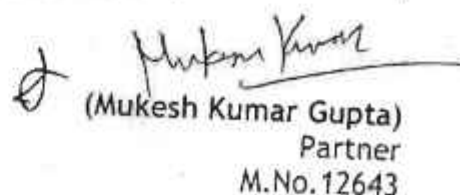 Mukesh Kumar
(Mukesh Kumar Gupta)
Partner
M.No.12643